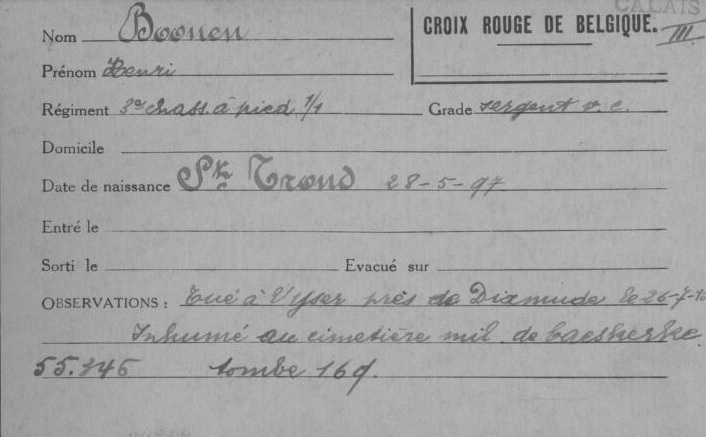 CALAIS
Nom Boonen
CROIX ROUGE DE BELGIQUE. III
Prénom Henri
Régiment 3e chass. à pied 1/1 Grade sergent v. c.
Domicile
Date de naissance St. Trond 28-5-97
Entré le
Sorti le Evacué sur
OBSERVATIONS : Tué à l'Yser près de Dixmude le 26-7-
Inhumé au cimetière mil. de
55.346 tombe 169.